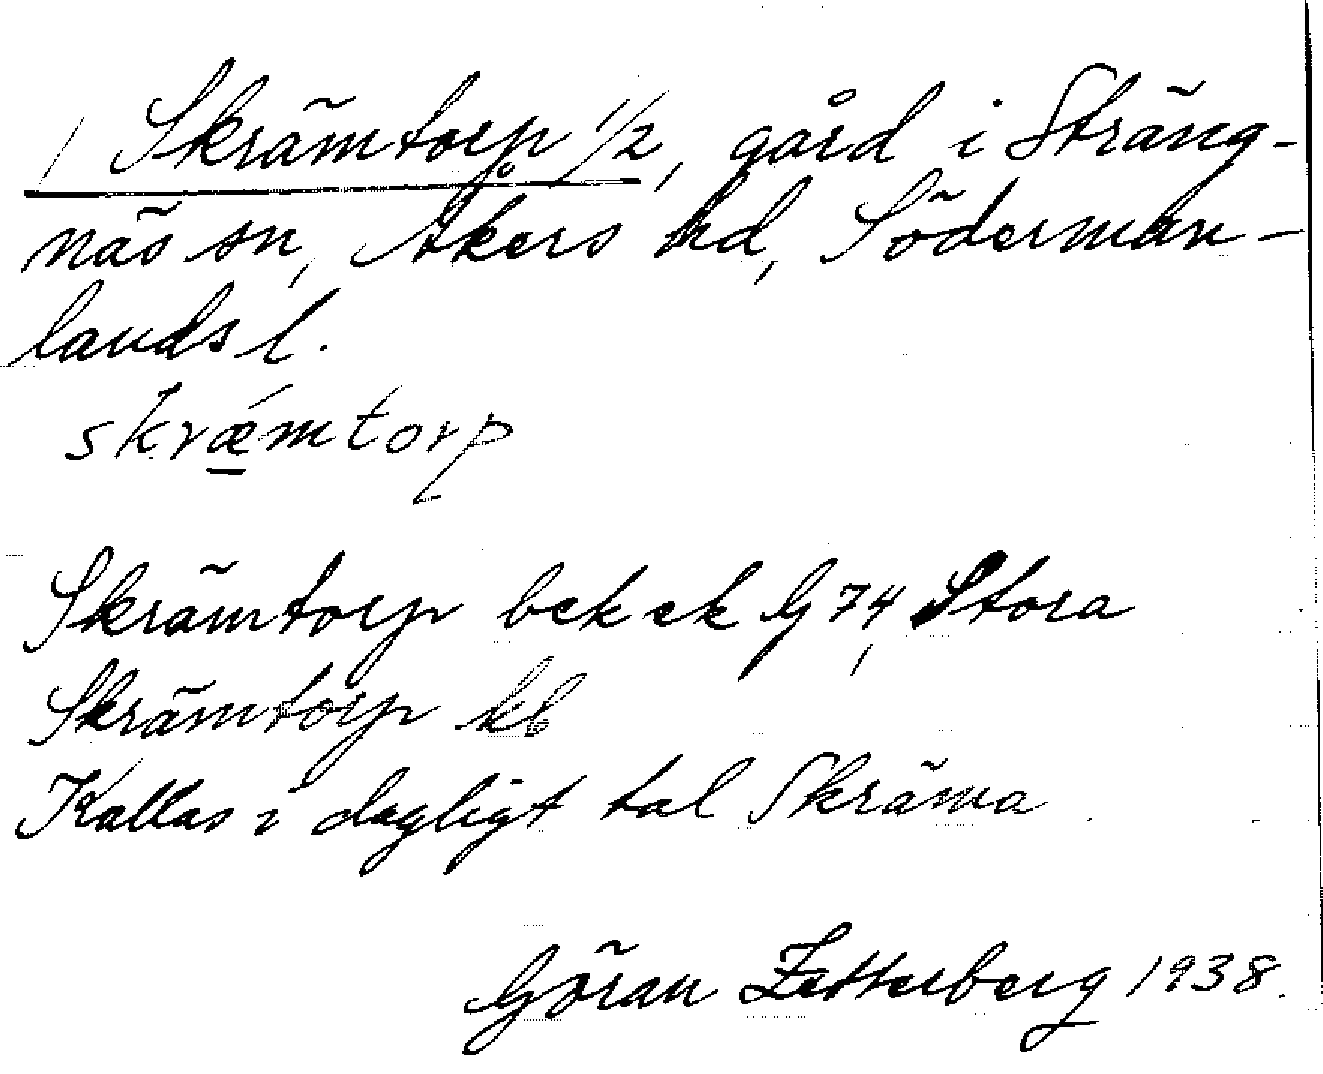 Skrämtorp 1/2, gård i Sträng-
näs sn, Åkers hd, Söderman-
lands l.
skrǽmtorp
Skrämtorp bek ek G 74, Stora
Skrämtorp kb
Kallas i dagligt tal Skräma
Göran Zetterberg 1938.